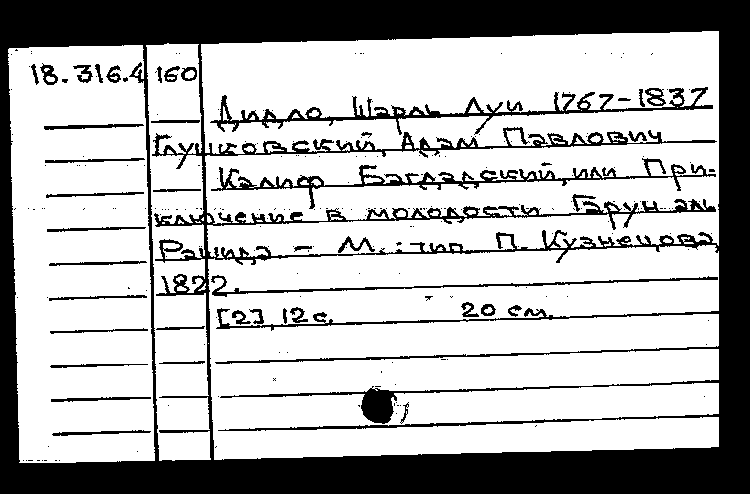 18.316.4 160
Дидло, Шарль Луи, 1767-1837
Глушковский, Адам Павлович
Калиф Багдадский, или При-
ключение в молодости Гарун аль
Рашида - М.: тип. П. Кузнецова,
1822.
[2], 12 с. 20 см.